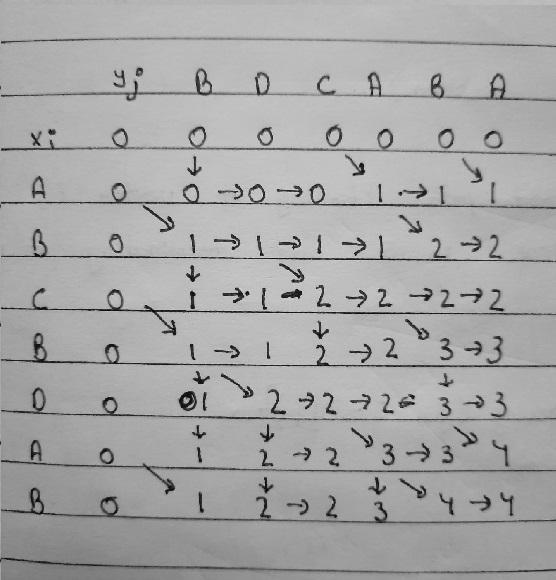 yj B D C A B A
xi 0 0 0 0 0 0 0
↓ ↘ ↘
A 0 0 → 0 → 0 1 → 1 1
↘ ↘
B 0 1 → 1 → 1 → 1 2 → 2
↓ ↘
C 0 1 → 1 2 → 2 → 2 → 2
↘ ↓ ↘
B 0 1 → 1 2 → 2 3 → 3
↓ ↘ ↓
D 0 1 2 → 2 → 2 3 → 3
↓ ↓ ↘ ↘
A 0 1 2 → 2 3 → 3 4
↘ ↓ ↓ ↘
B 0 1 2 → 2 3 4 → 4